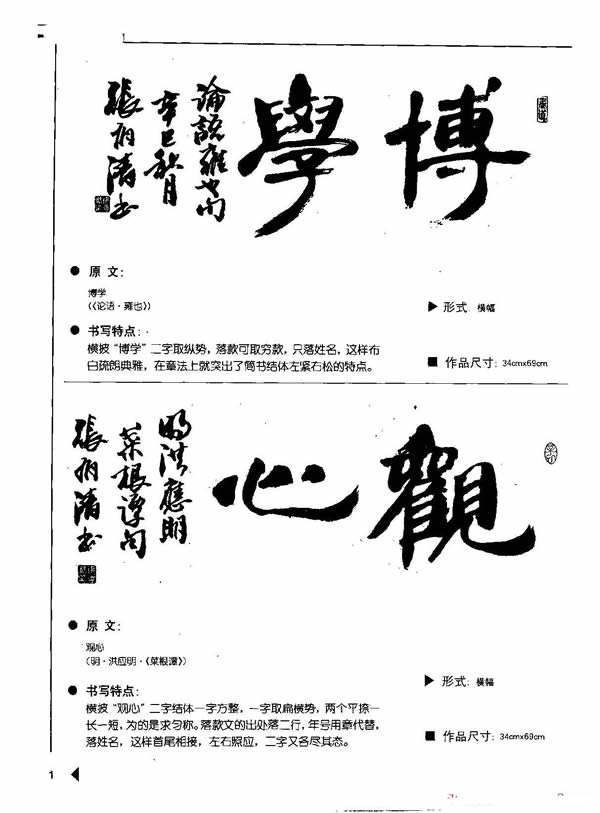 博學
論語雍也句
辛巳秋月
張炳清書
● 原文:
博学
(《论语·雍也》)
▶ 形式: 横幅
● 书写特点:
横披“博学”二字取纵势，落款可取穷款，只落姓名，这样布
白疏朗典雅，在章法上就突出了简书结体左紧右松的特点。
■ 作品尺寸: 34cm×69cm
觀心
明洪應明
菜根譚句
張炳清書
● 原文:
观心
(明·洪应明·《菜根谭》)
▶ 形式: 横幅
● 书写特点:
横披“观心”二字结体一字方整，一字取扁横势，两个平捺一
长一短，为的是求匀称。落款文的出处落二行，年号用章代替，
落姓名，这样首尾相接，左右照应，二字又各尽其态。
■ 作品尺寸: 34cm×69cm
1